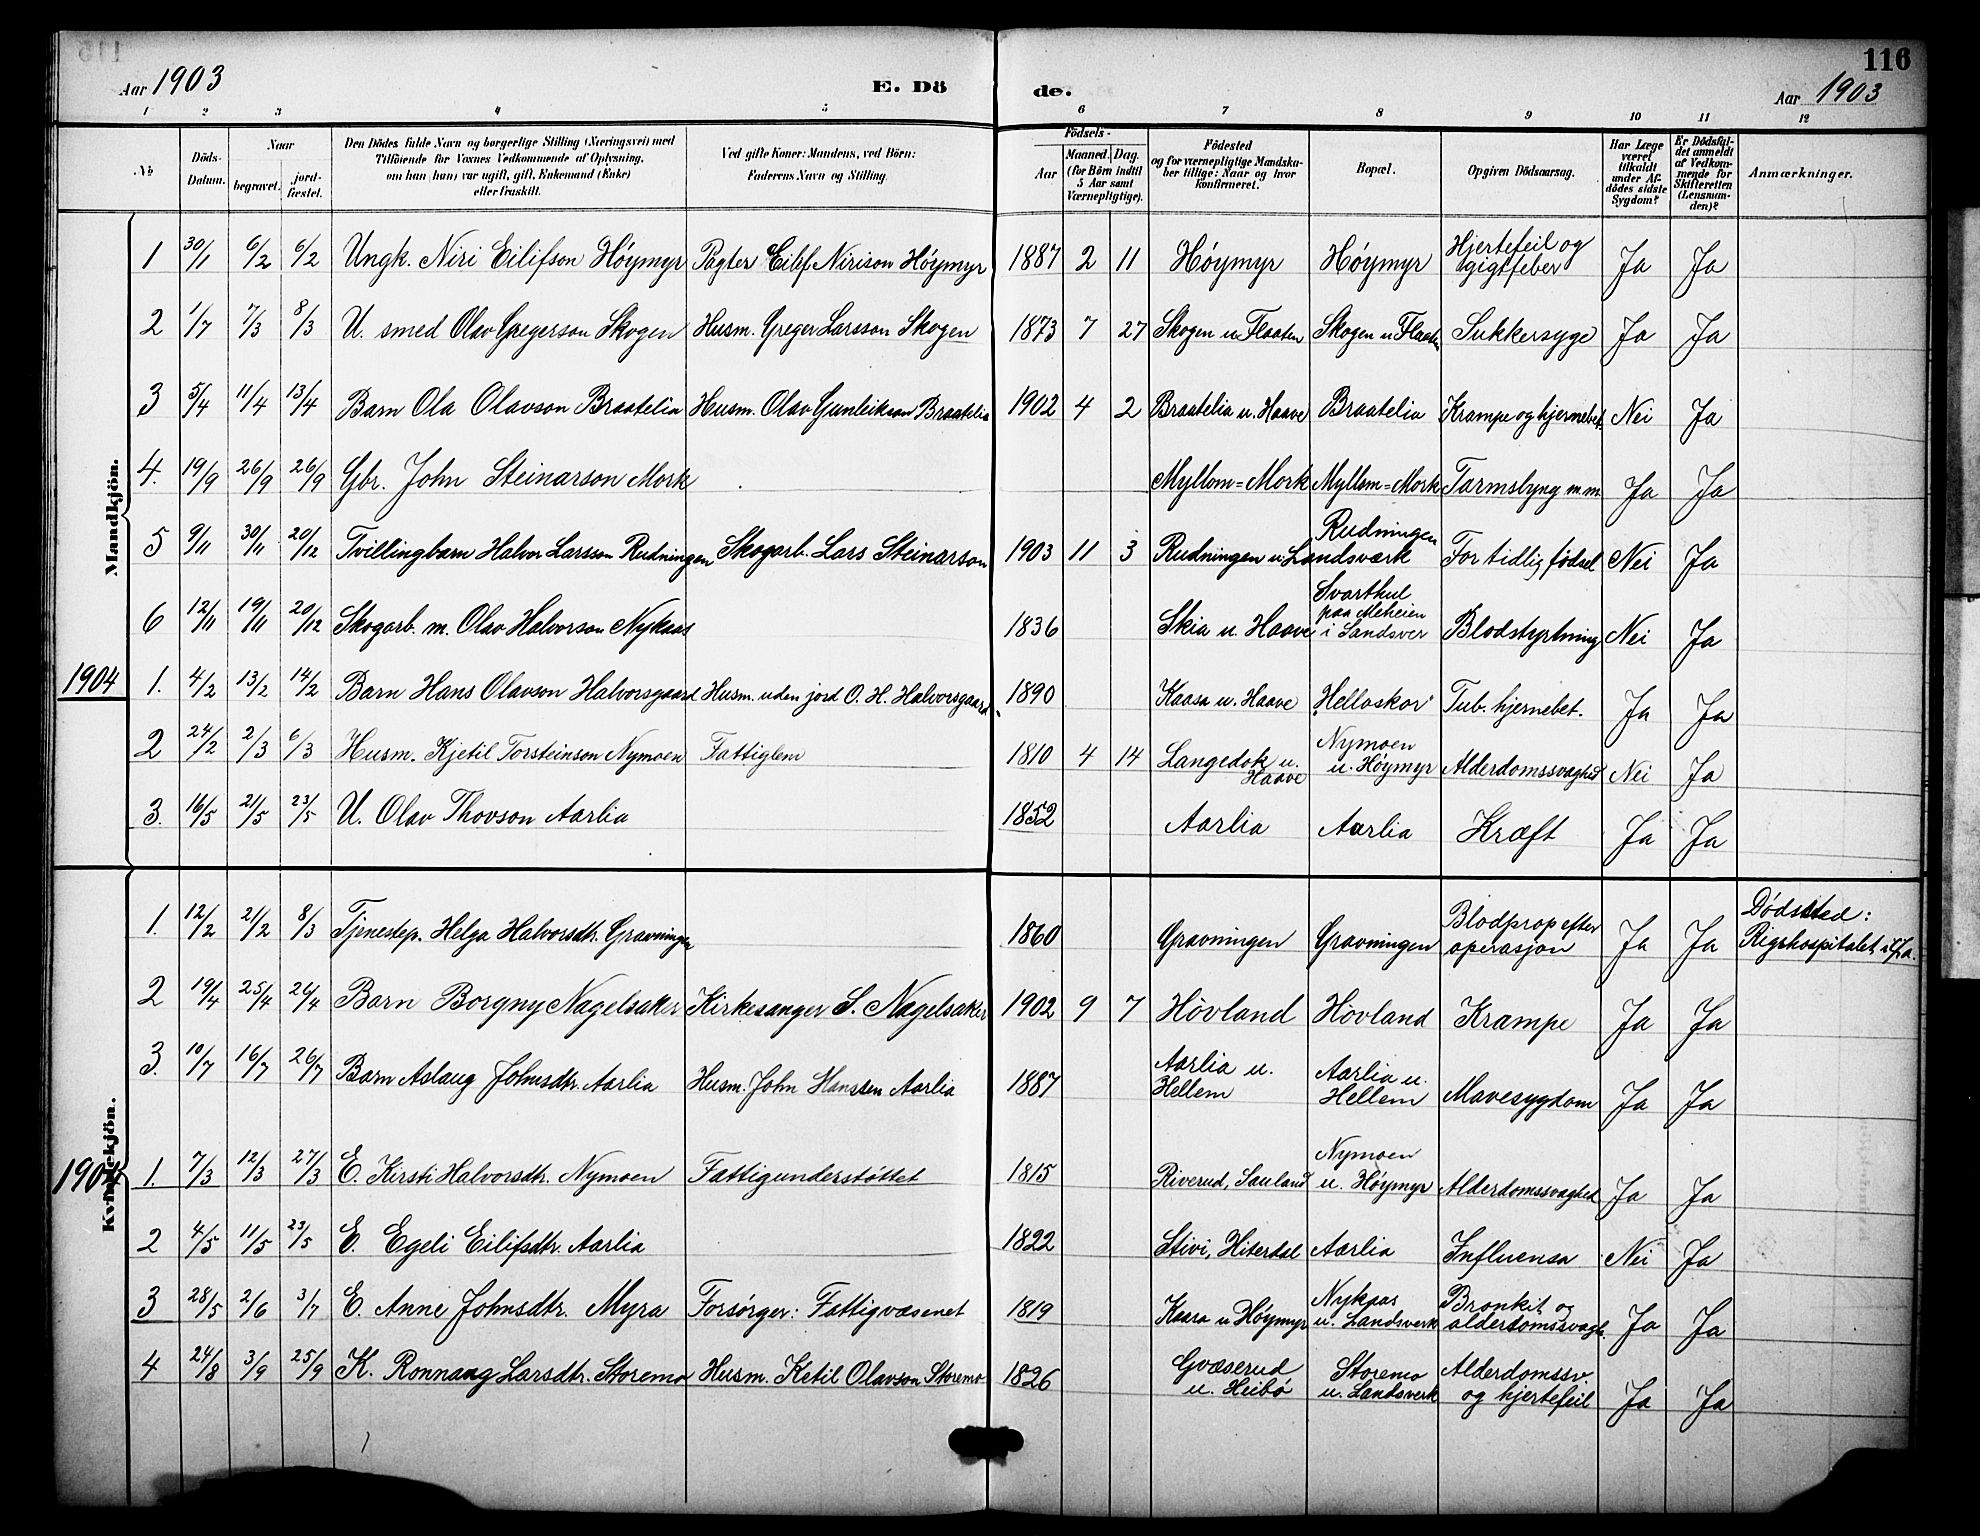 115
116
Aar 1903
E. Dö
de.
Aar 1903
1 2 3 4 5 6 7 8 9 10 11 12
No
Döds-Datum.
Naar
begravet.
jord-fæstet.
Den Dödes fulde Navn og borgerlige Stilling (Næringsvei) med
Tilföiende for Voxnes Vedkommende af Oplysning,
om han (hun) var ugift, gift, Enkemand (Enke)
eller fraskilt.
Ved gifte Koner: Mandens, ved Börn:
Faderens Navn og Stilling.
Födsels-
Aar
Maaned. Dag.
(for Börn indtil
5 Aar samt
Værnepligtige).
Födested
og for værnepligtige Mandska-
ber tillige: Naar og hvor
konfirmeret.
Bopæl.
Opgiven Dödsaarsag.
Har Læge
været
tilkaldt
under Af-
dödes sidste
Sygdom?
Er Dödsfal-
det anmeldt
af Vedkom-
mende for
Skifteretten
(Lensman-
den)?
Anmærkninger.
Mandkjön.
1 30/1 6/2 6/2 Ungk. Niri Eilifson Höymyr Pagter Eilif Nirison Höymyr 1887 2 11 Höymyr Höymyr Hjertefeil og gigtfeber Ja Ja
2 1/7 7/3 8/3 U. smed Olav Gregerson Skogen Husm. Greger Larsson Skogen 1873 7 27 Skogen u Flaaten Skogen u Flaaten Sukkersyge Ja Ja
3 5/4 11/4 13/4 Barn Ola Olavson Braatelia Husm. Olav Gunleikson Braatelia 1902 4 2 Braatelia u. Haave Braatelia Krampe og hjernebet. Nei Ja
4. 19/9 26/9 26/9 Gbr. John Steinarson Mork Myllom=Mork Myllom=Mork Tarmslyng m.m. Ja Ja
5 9/11 30/11 20/12 Tvillingbarn Halvor Larsson Rudningen Skogarb. Lars Steinarson 1903 11 3 Rudningen u. Landsværk Rudningen For tidlig fødsel Nei Ja
6 12/11 19/11 20/12 Skogarb. m. Olav Halvorson Nykaas 1836 Skia u. Haave Svarthul paa Meheien i Sandsver Blodstyrtning Nei Ja
1904 1. 4/2 13/2 14/2 Barn Hans Olavson Halvorsgaard Husm. uden jord O. H. Halvorsgaard 1890 Kaasa u. Haave Helloskor Tub. hjernebet. Ja Ja
2 24/2 2/3 6/3 Husm. Kjetil Torsteinson Nymoen Fattiglem 1810 4 14 Langedok u. Haave Nymoen u. Höymyr Alderdomssvaghed Nei Ja
3. 16/5 21/5 23/5 U. Olav Thovson Aarlia 1852 Aarlia Aarlia Kræft Ja Ja
Kvindekjön.
1. 12/2 21/2 8/3 Tjenestep. Helga Halvorsdtr. Gravningen 1860 Gravningen Gravningen Blodprop efter operasjon Ja Ja Dödssted: Rigshospitalet i Kra.
2 19/4 25/4 26/4 Barn Borgny Nagelsaker Kirkesanger S. Nagelsaker 1902 9 7 Hövland Hövland Krampe Ja Ja
3. 10/7 16/7 26/7 Barn Aslaug Johnsdtr. Aarlia Husm. John Hanssen Aarlia 1887 Aarlia u. Hellem Aarlia u. Hellem Mavesygdom Ja Ja
1904 1. 7/3 12/3 27/3 E. Kirsti Halvorsdtr. Nymoen Fattigunderstöttet 1815 Riverud, Sauland Nymoen u. Höymyr Alderdomssvaghed Ja Ja
2 4/5 11/5 23/5 E. Egeli Eilifsdtr. Aarlia 1822 Stivi, Hiterdal Aarlia Influensa Nei Ja
3 28/5 2/6 3/7 E. Anne Johnsdtr. Myra Forsørger: Fattigvæsenet 1819 Kaasa u Höymyr Nykaas u. Landsverk Bronkit og alderdomssvagh. Ja Ja
4 24/8 3/9 25/9 K. Ronnaug Larsdtr. Storemo Husm. Ketil Olavson Storemo 1826 Gvæserud u. Heibö Storemo u. Landsverk Alderdomssv. og hjertefeil Ja Ja